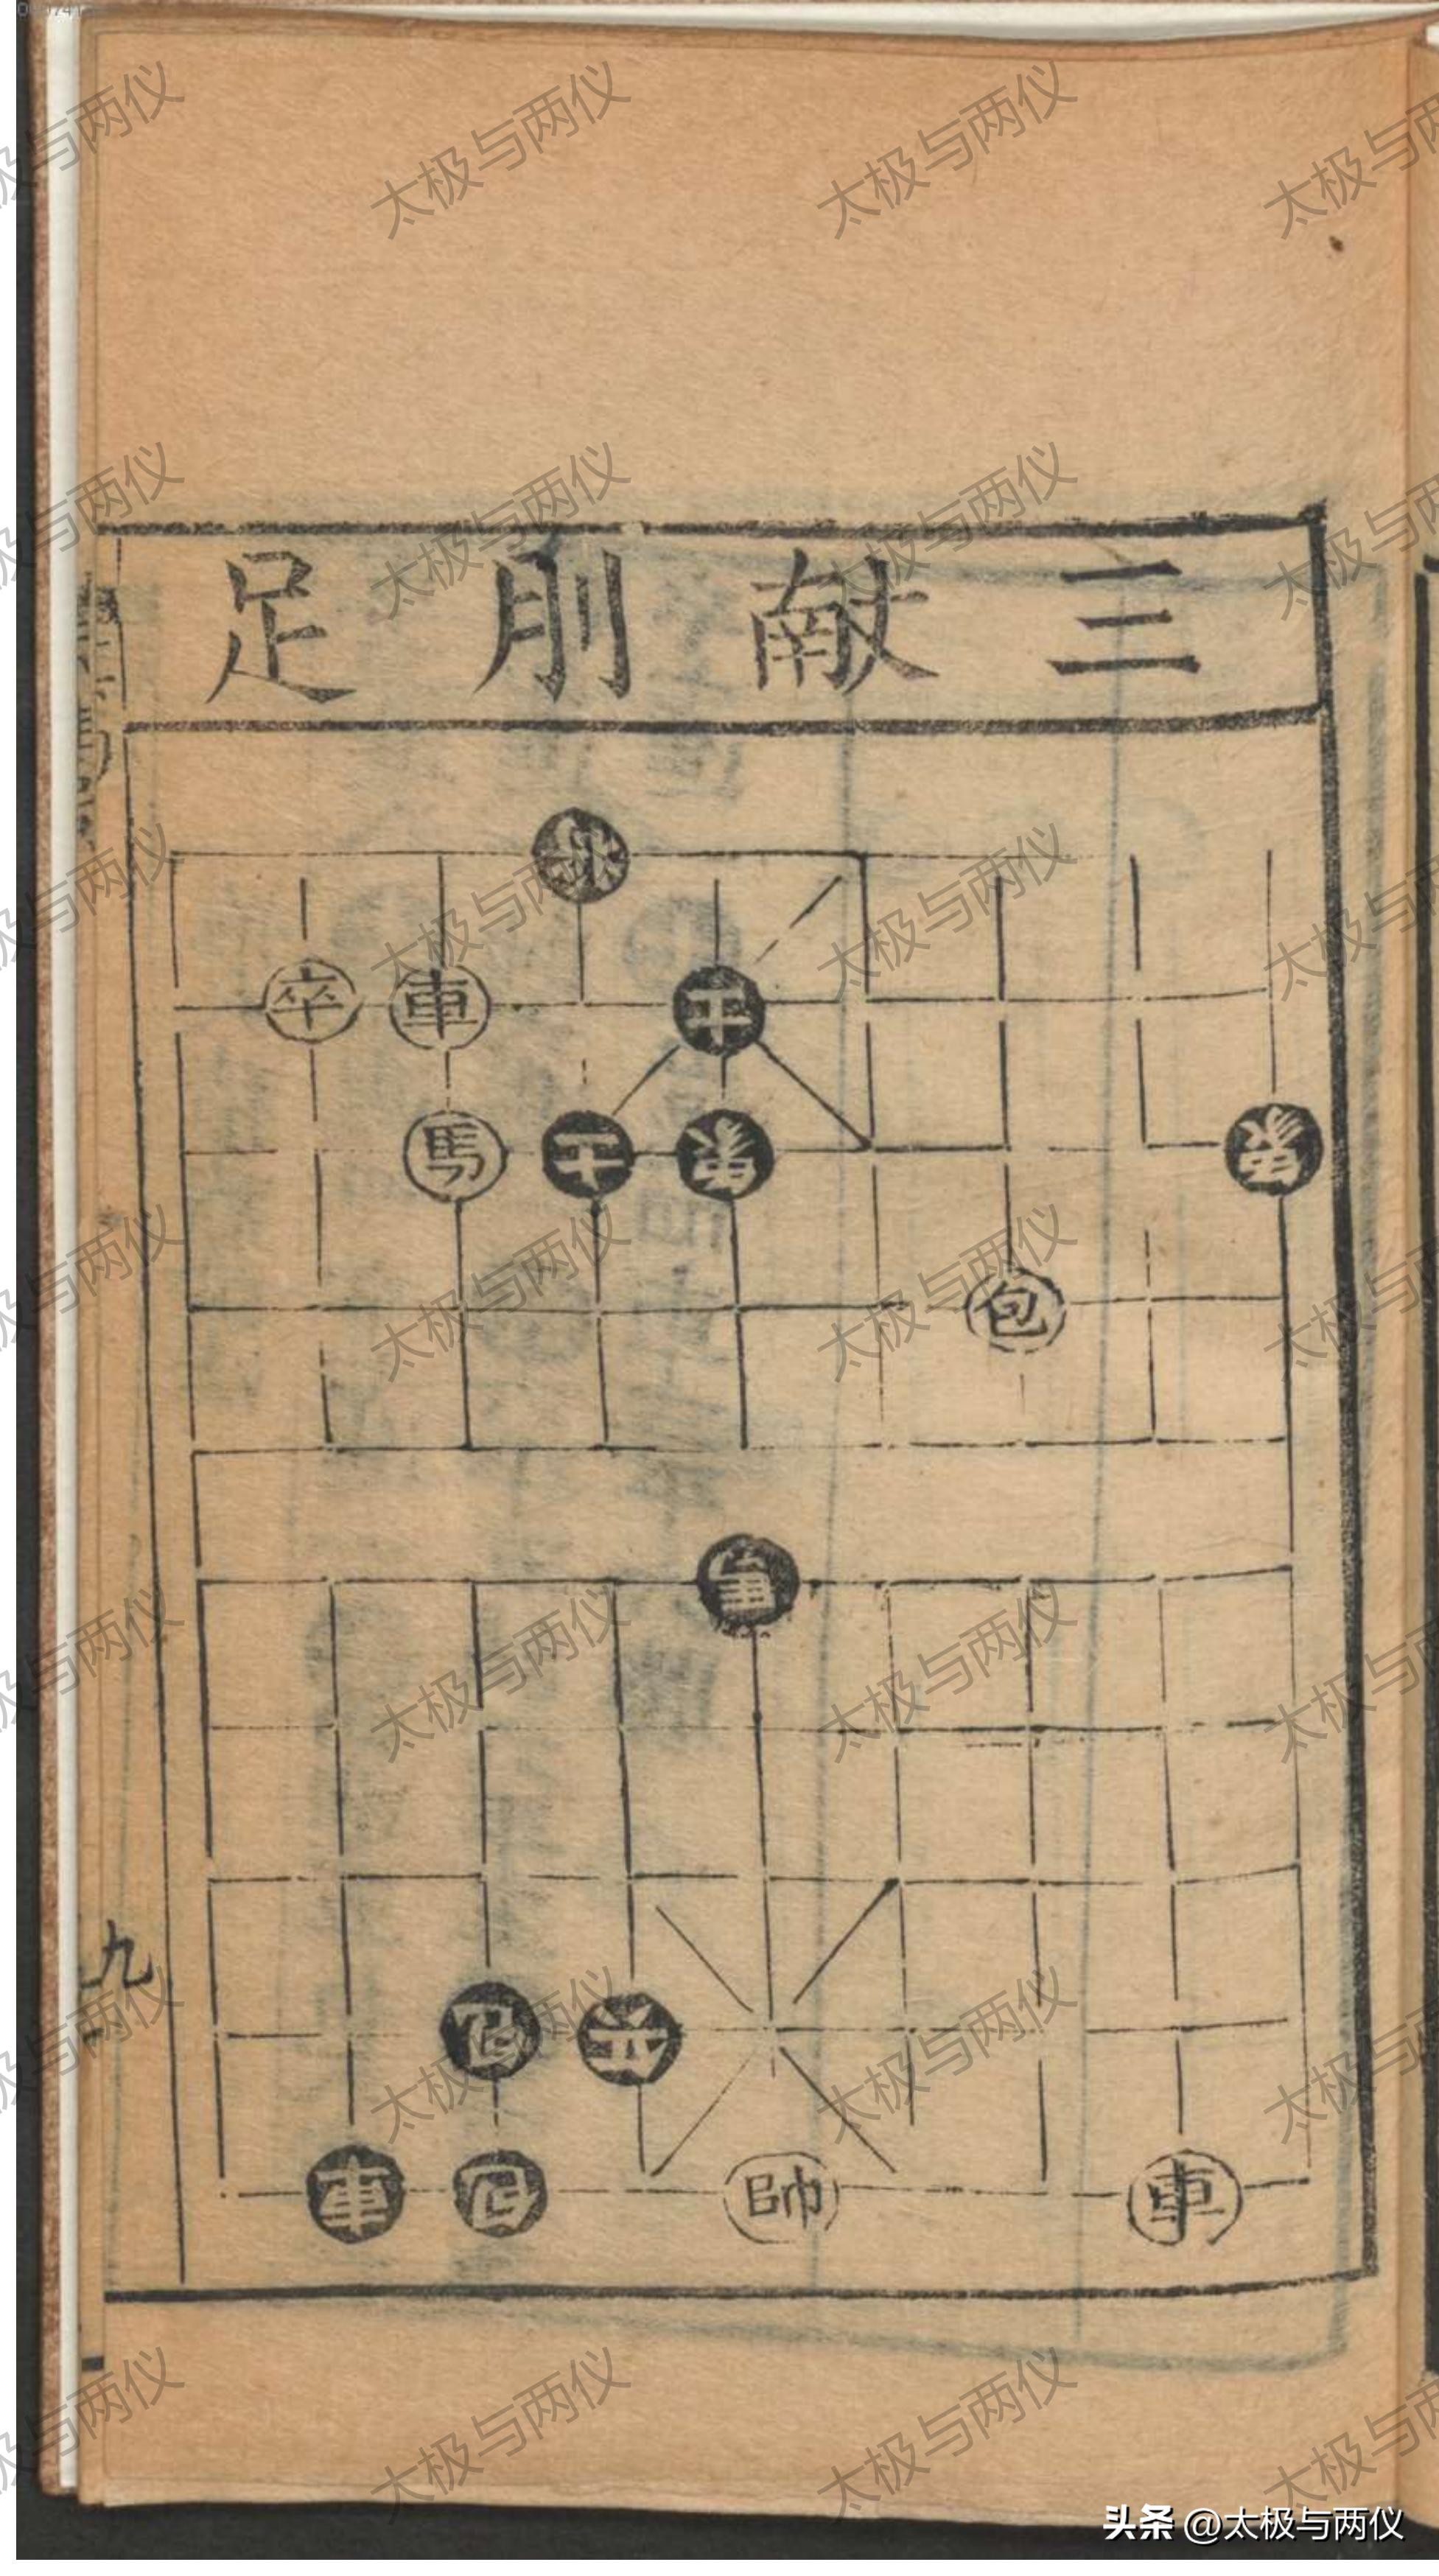 三献刖足
卒 車 士
馬 士 象 象
包
車
包 卒
車 包 帥 車
九
太极与两仪
头条 @太极与两仪